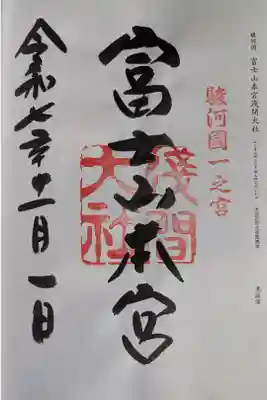 駿河国 富士山本宮浅間大社
駿河國一之宮
富士山本宮
淺間大社
令和七年十一月一日